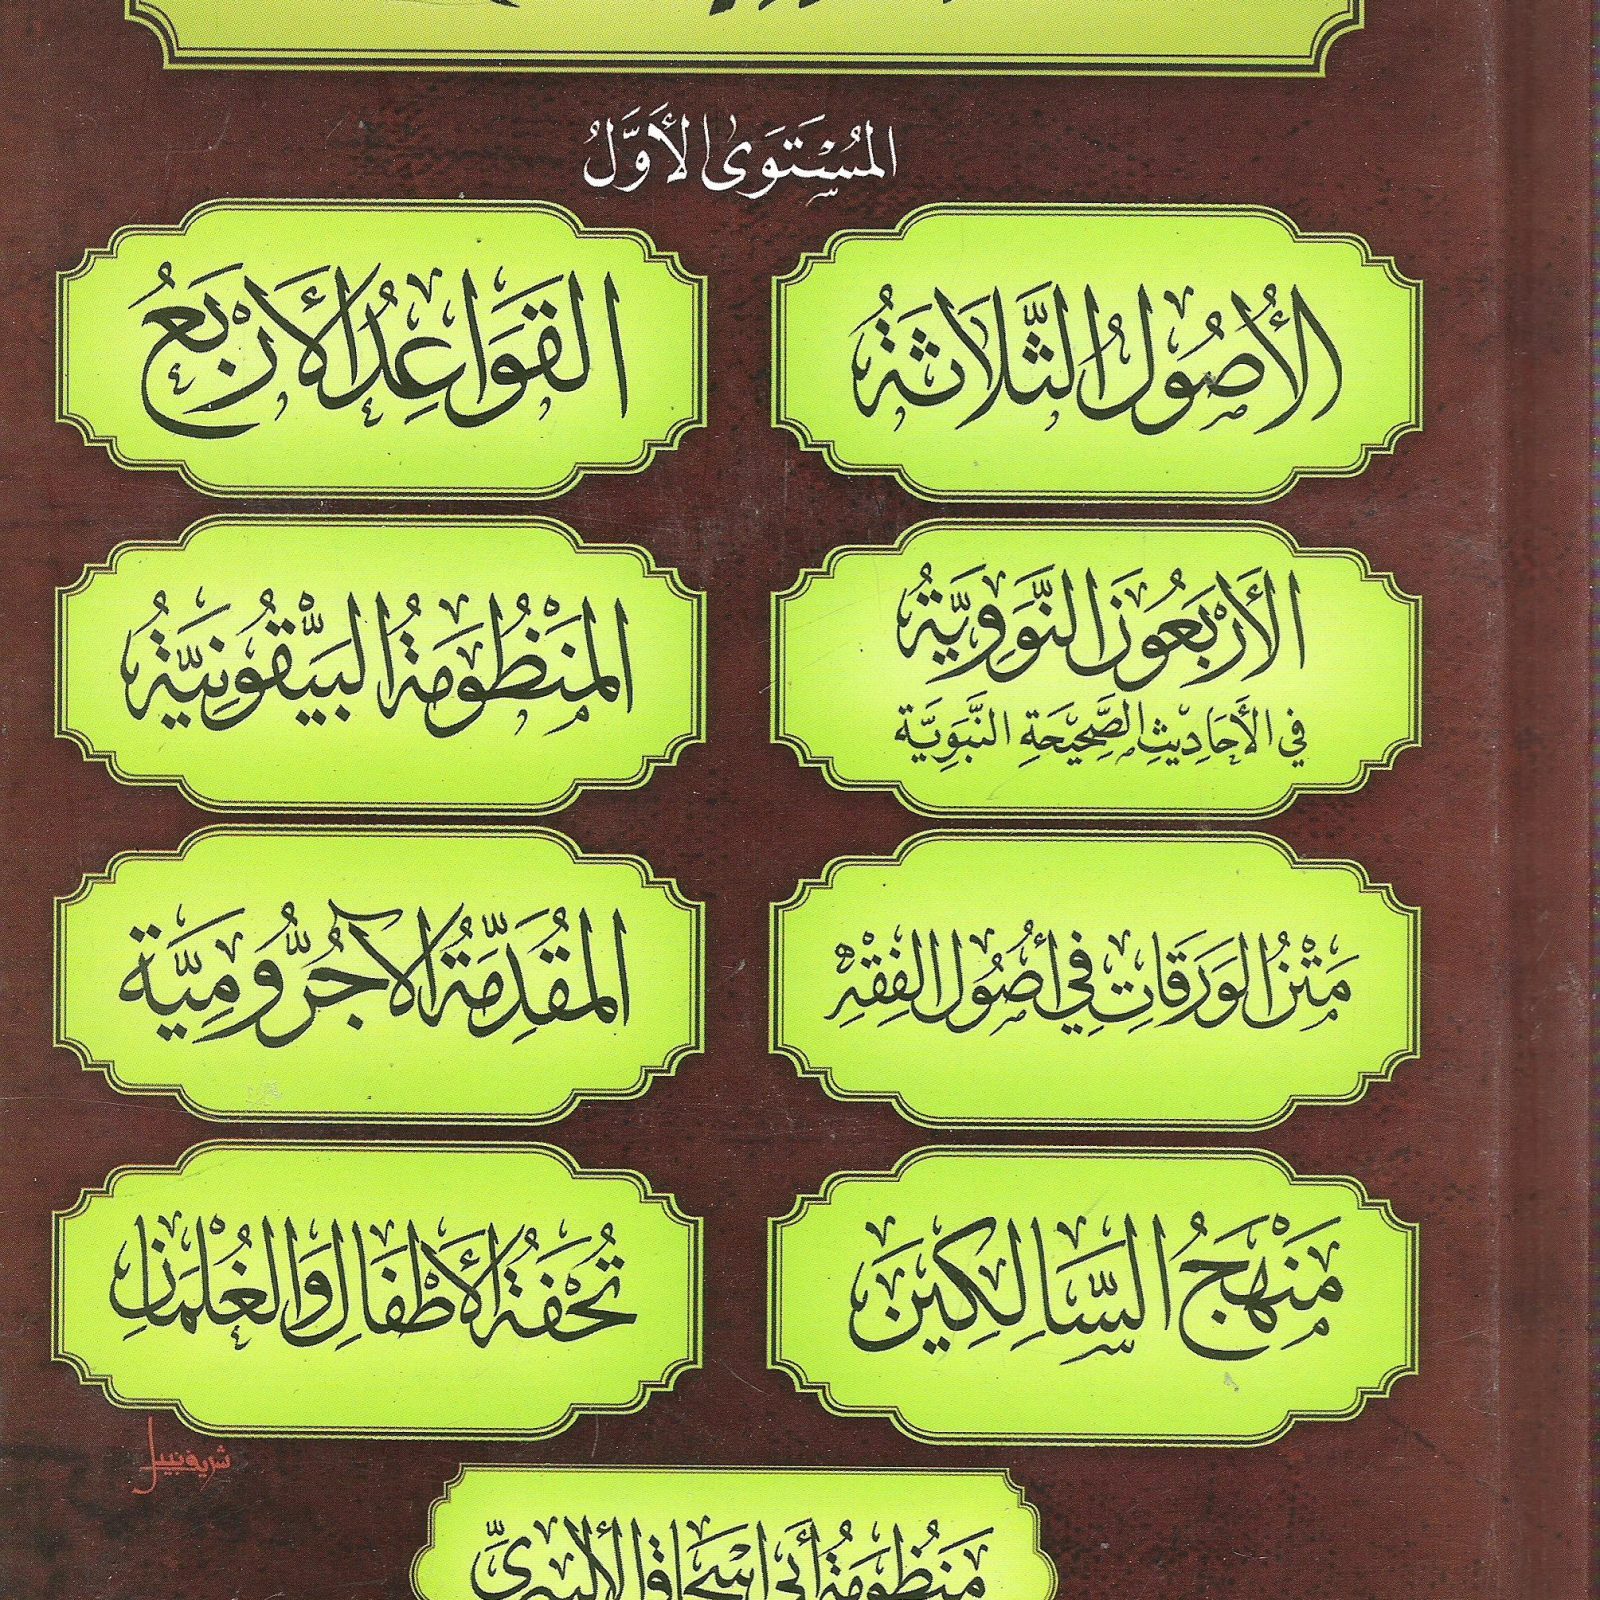 المُسْتَوَى الأَوَّلُ
الأُصُولُ الثَّلَاثَةُ
القَوَاعِدُ الأَرْبَعُ
الأَرْبَعُونَ النَّوَوِيَّةُ
فِي الأَحَادِيثِ الصَّحِيحَةِ النَّبَوِيَّةِ
المَنْظُومَةُ البَيْقُونِيَّةُ
مَتْنُ الوَرَقَاتِ فِي أُصُولِ الفِقْهِ
المُقَدِّمَةُ الآجُرُّومِيَّة
مَنْهَجُ السَّالِكِينَ
تُحْفَةُ الأَطْفَالِ وَالغُلْمَانِ
شريف نبيل
مَنْظُومَةُ أَبِي إِسْحَاقَ الأَلْبِيرِيِّ